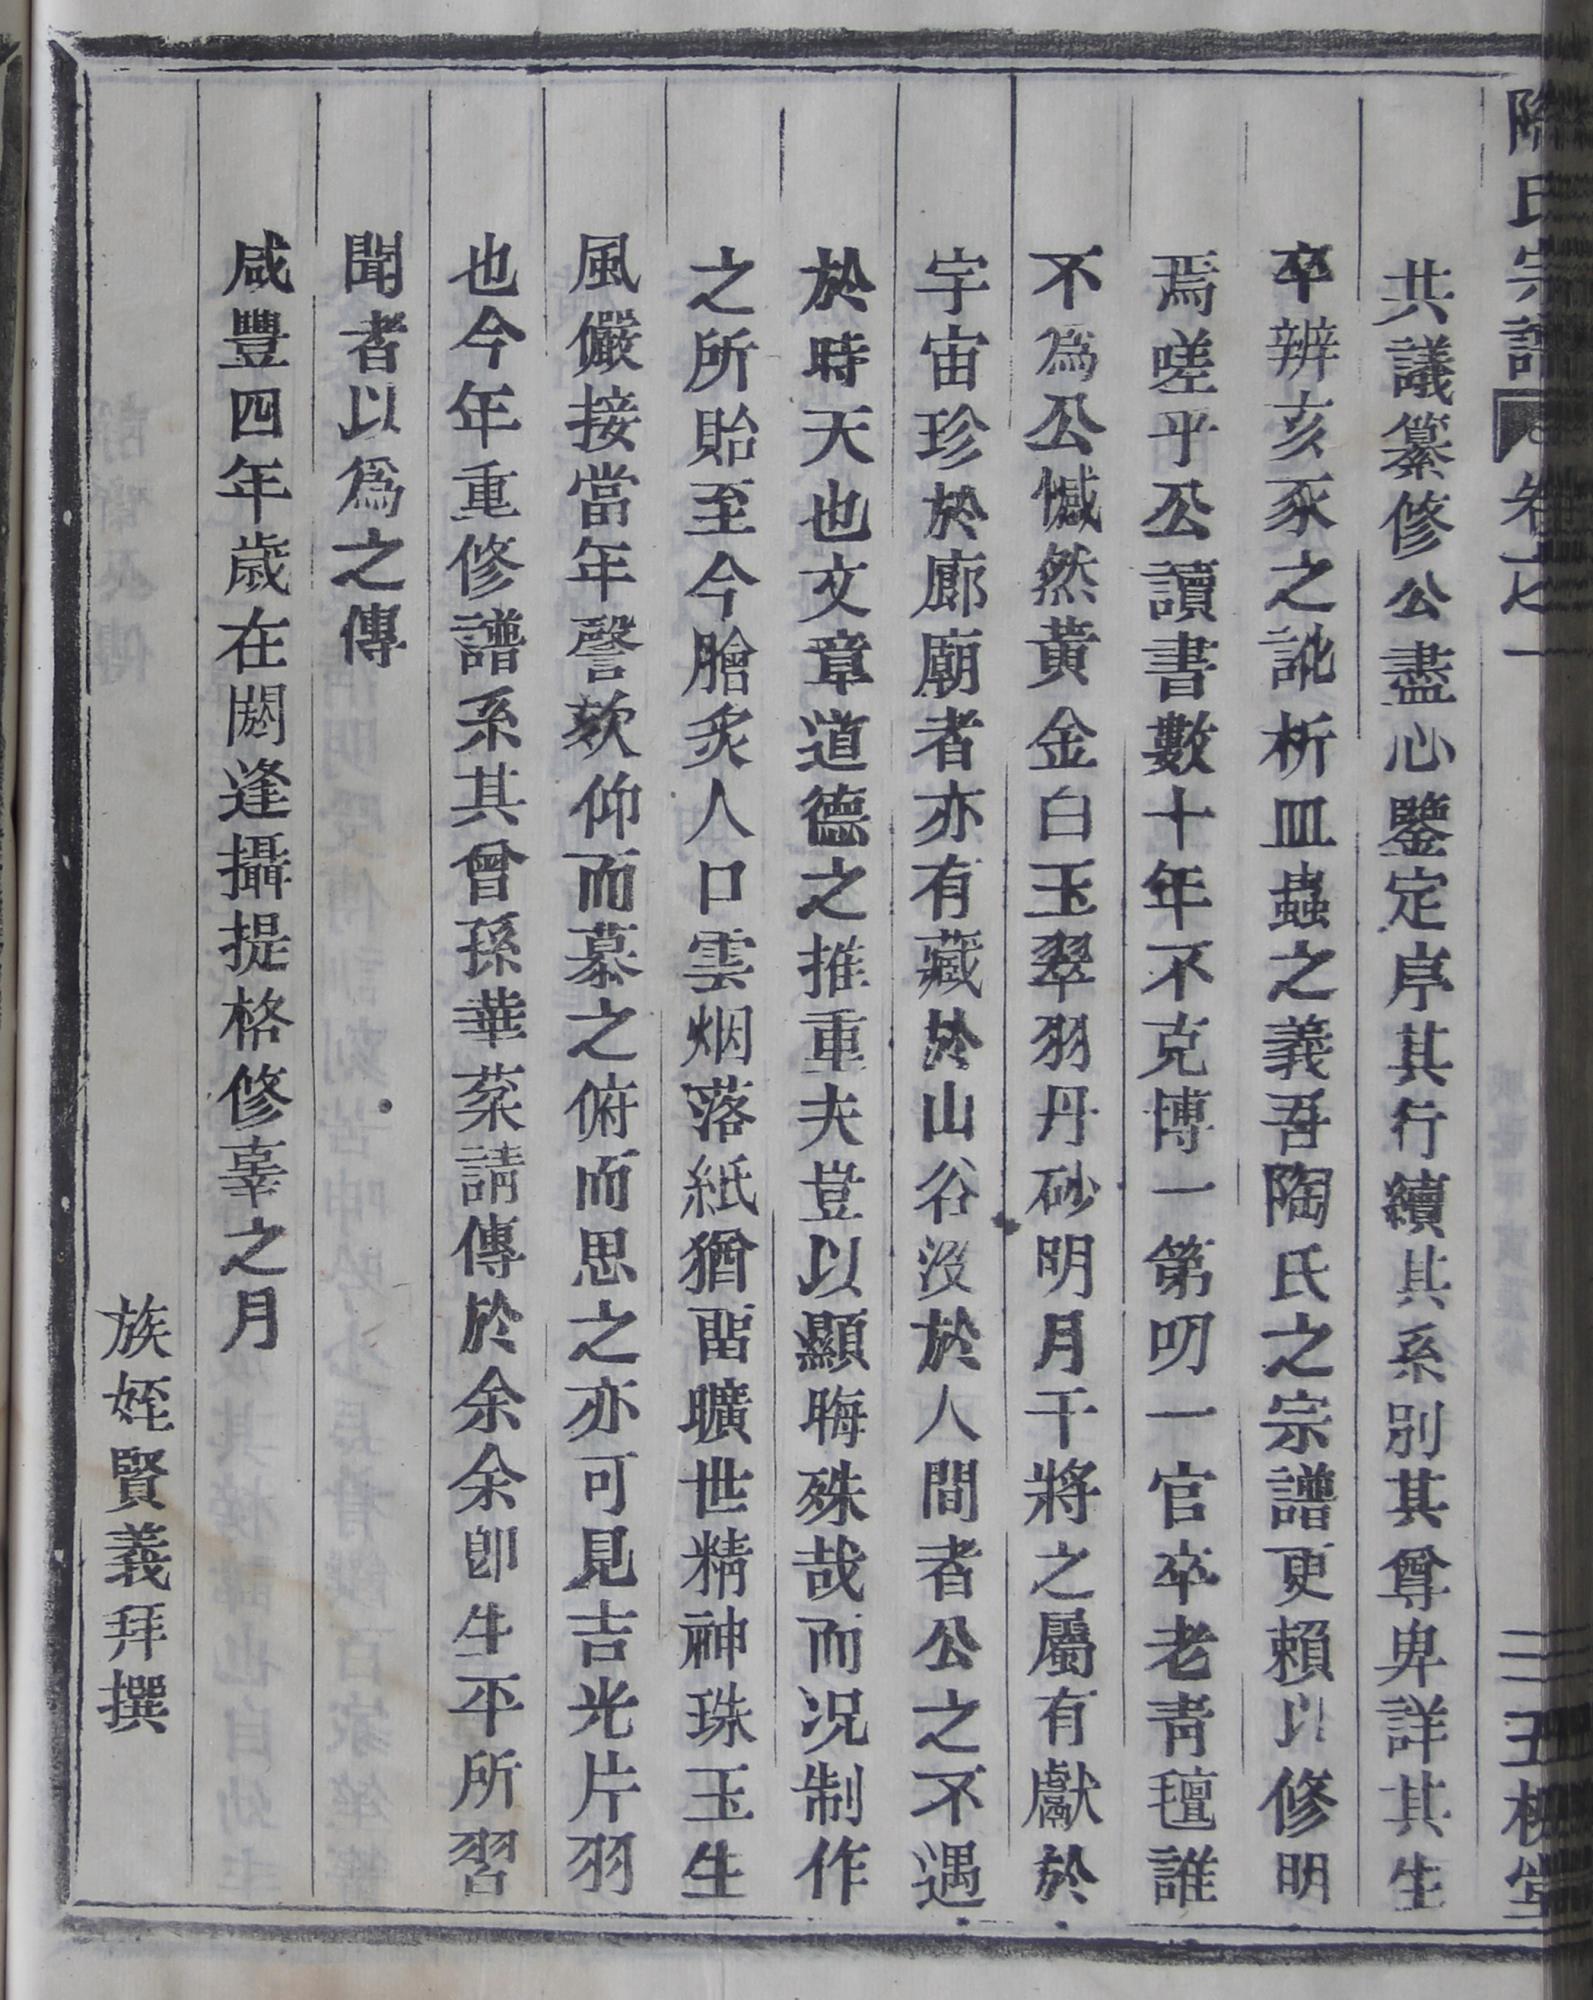 陶氏宗譜 卷之一 三 五柳堂
共議纂修公盡心鑒定序其行續其系別其尊卑詳其生
卒辨亥豕之訛析皿蟲之義吾陶氏之宗譜更賴以修明
焉嗟乎公讀書數十年不克博一第叨一官卒老靑氊誰
不為公憾然黃金白玉翠羽丹砂明月干將之屬有獻於
宇宙珍於廊廟者亦有藏於山谷沒於人間者公之不遇
於時天也文章道德之推重夫豈以顯晦殊哉而况制作
之所貽至今膾炙人口雲烟落紙猶畱曠世精神珠玉生
風儼接當年謦欬仰而慕之俯而思之亦可見吉光片羽
也今年重修譜系其曾孫華棻請傳於余余卽生平所習
聞者以爲之傳
咸豐四年歲在閼逢攝提格修辜之月
族姪賢義拜撰